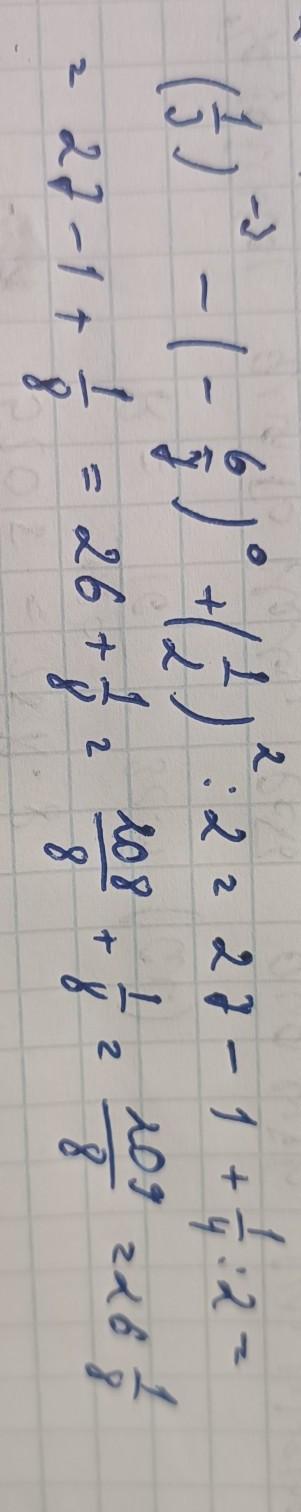 (1/3)^-3 - (-6/7)^0 + (1/2)^2 : 2 = 27 - 1 + 1/4 : 2 =
= 27 - 1 + 1/8 = 26 + 1/8 = 208/8 + 1/8 = 209/8 = 26 1/8